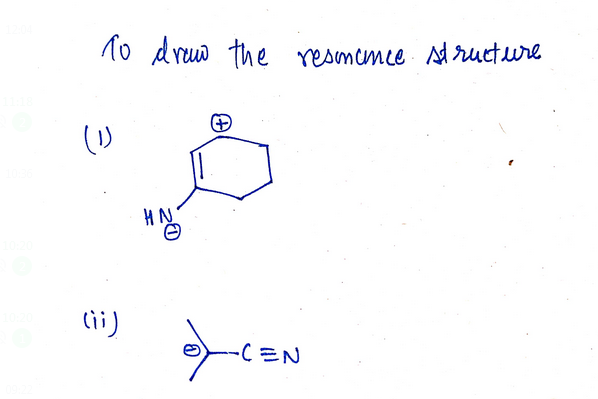 To draw the resonance structure
(i)
⊕
HN
⊖
(ii)
⊖ -C≡N